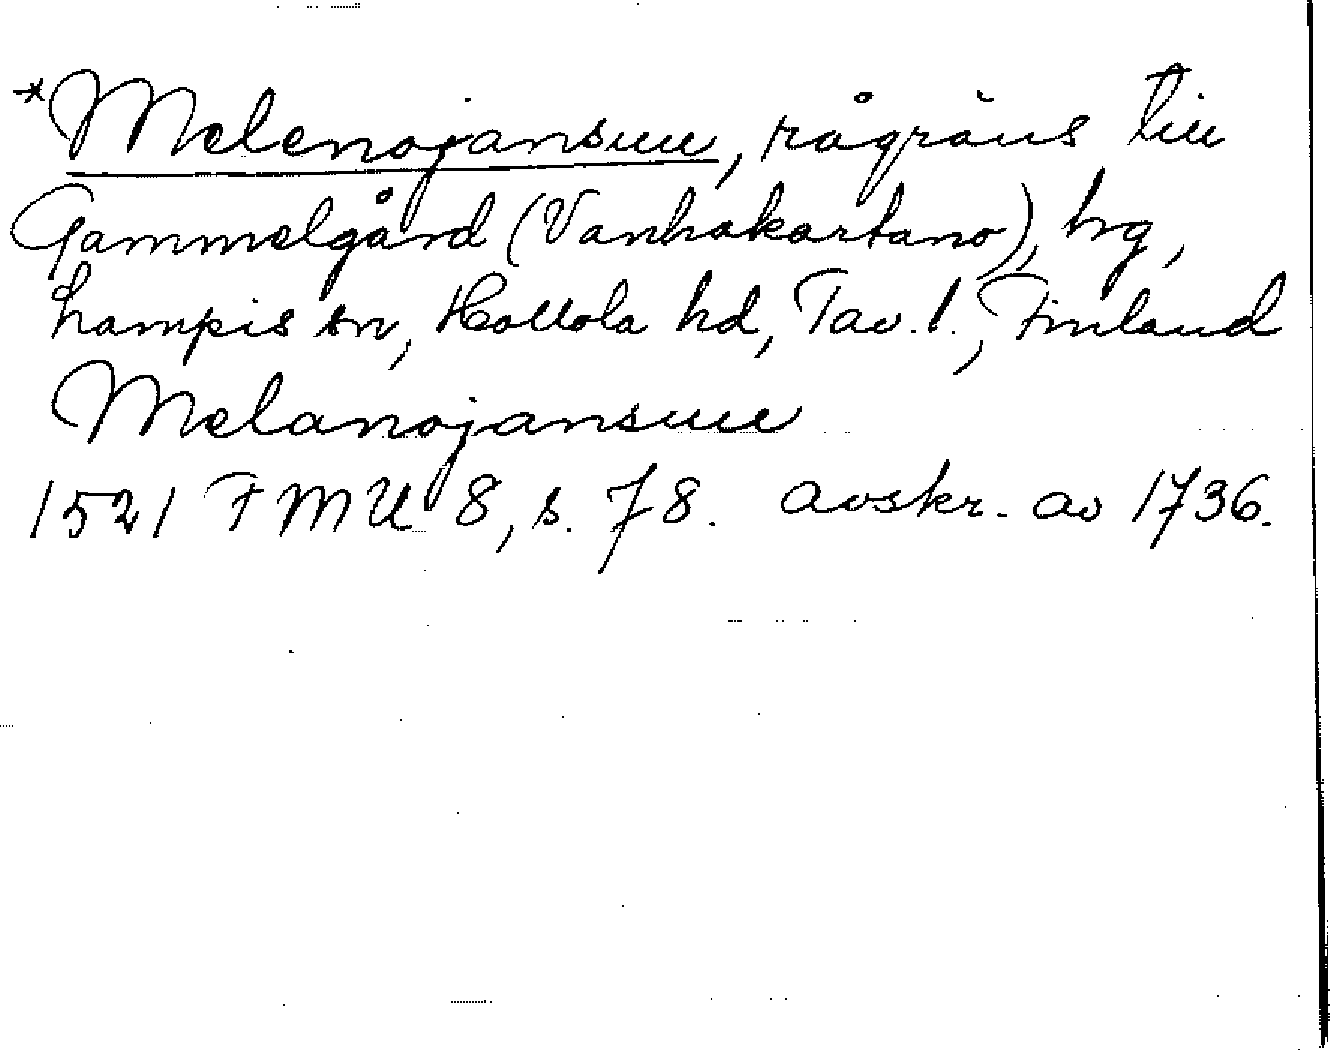 *Melenojansuu, rågräns till
Gammelgård (Vanhakartano), hg,
Lampis sn, Hollola hd, Tav. l., Finland
Melanojansuu
1521 FMU 8, s. 78. avskr. av 1736.